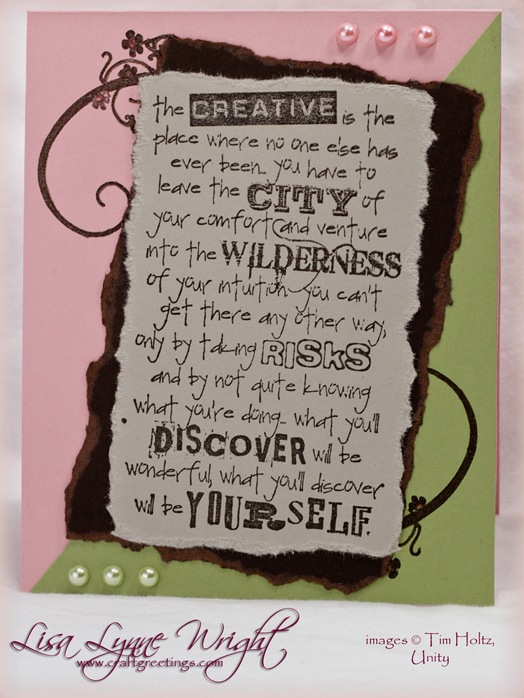 the CREATIVE is the
place where no one else has
ever been... you have to
leave the CITY of
your comfort and venture
into the WILDERNESS
of your intuition... you can't
get there any other way,
only by taking RISKS
and by not quite knowing
what you're doing... what you'll
DISCOVER will be
wonderful. what you'll discover
will be YOURSELF.
Lisa Lynne Wright
www.craftgreetings.com
images © Tim Holtz,
Unity